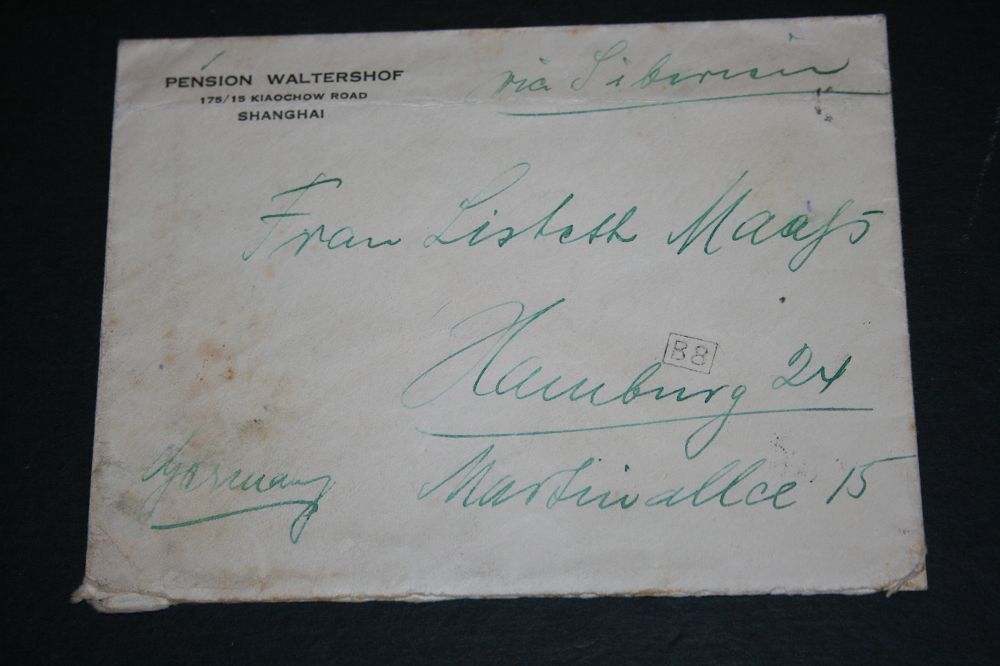 PENSION WALTERSHOF
175/15 KIAOCHOW ROAD
SHANGHAI
via Siberien
Frau Lisbeth Maass
Hamburg 24
B8
Martinallee 15
Germany